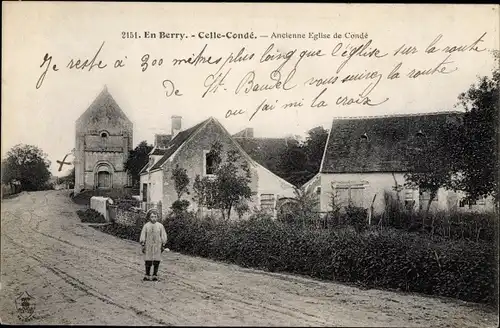 2151. En Berry. - Celle-Condé. - Ancienne Eglise de Condé
je reste à 300 mètres plus loing que l'église sur la route
de St. Baudel vous suivez la route
ou j'ai mi la croix